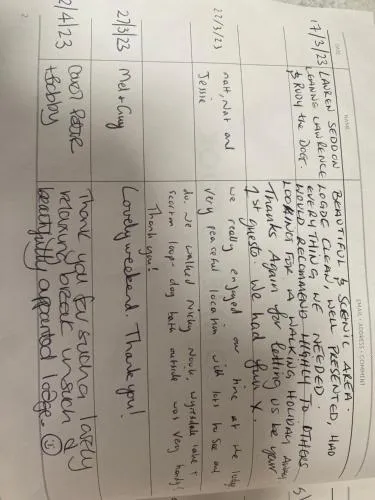 DATE
NAME
EMAIL · ADDRESS · COMMENT
17/3/23
LAUREN SEDDON
LEANNE LAWRENCE
& RUDY the DOG.
BEAUTIFUL & SCENIC AREA.
LOGDE CLEAN, WELL PRESENTED, HAD
EVERYTHING WE NEEDED.
WOULD RECOMMEND HIGHLY TO OTHERS
LOOKING FOR A WALKING HOLIDAY AWAY
Thanks Again for letting us be your
1st guests. We had fun X.
22/3/23
Matt, Nat and
Jessie
we really enjoyed our time at the lodge
very peaceful location with lots to see and
do. We walked Nicky Nook, Wyresdale lake &
scorton loop - dog bath outside was very handy!
Thank you!
27/3/23
Mel + Guy
Lovely weekend. Thank you!
2/4/23
Carol Peter
+ Bobby
Thank you for such a lovely
relaxing break in such a
beautifully appointed lodge.
2